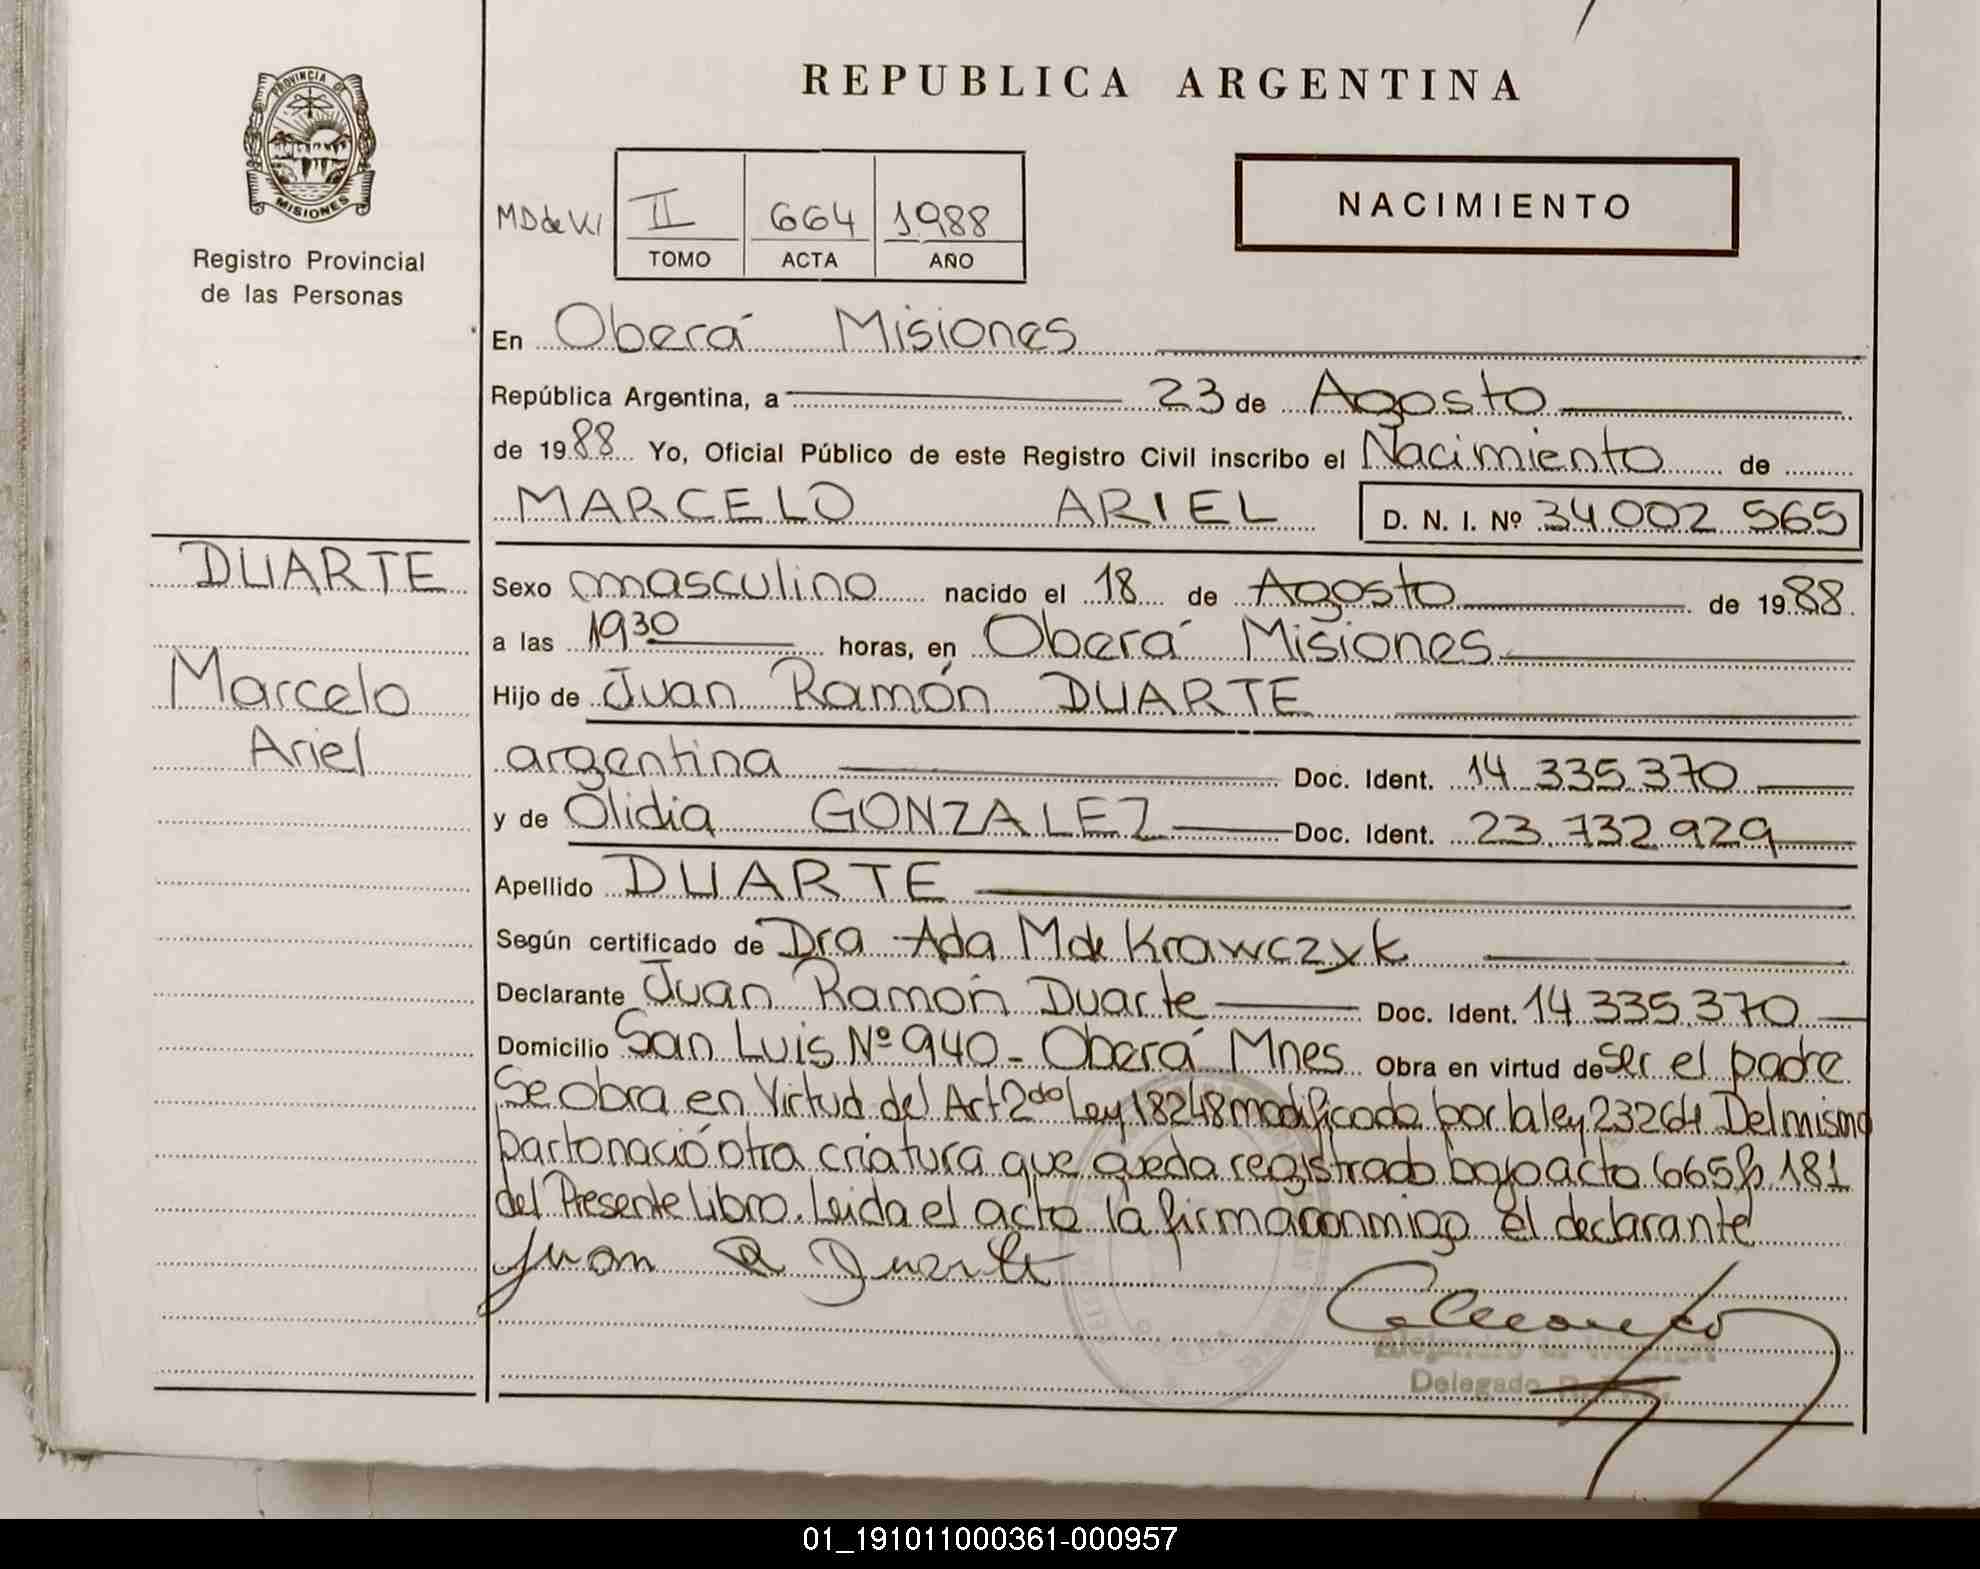 PROVINCIA DE
MISIONES
Registro Provincial
de las Personas
REPUBLICA ARGENTINA
NACIMIENTO
II 664 1988
TOMO ACTA AÑO
En Oberá Misiones
República Argentina, a 23 de Agosto
de 1988 Yo, Oficial Público de este Registro Civil inscribo el Nacimiento de
MARCELO ARIEL D. N. I. Nº 34 002 565
DUARTE
Marcelo
Ariel
Sexo masculino nacido el 18 de Agosto de 1988
a las 1930 horas, en Oberá Misiones
Hijo de Juan Ramón DUARTE
argentina Doc. Ident. 14.335.370
y de Olidia GONZALEZ Doc. Ident. 23.732.929
Apellido DUARTE
Según certificado de Dra Ada M de Krawczyk
Declarante Juan Ramón Duarte Doc. Ident. 14.335.370
Domicilio San Luis Nº 940 - Oberá Mnes Obra en virtud de ser el padre
Se obra en Virtud del Art 2do Ley 18248 modificada por la ley 23264. Del mismo
parto nació otra criatura que queda registrado bajo acta 665 fº 181
del Presente Libro. Leida el acta la firma conmigo el declarante
Juan R Duarte
Delegado
01_191011000361-000957